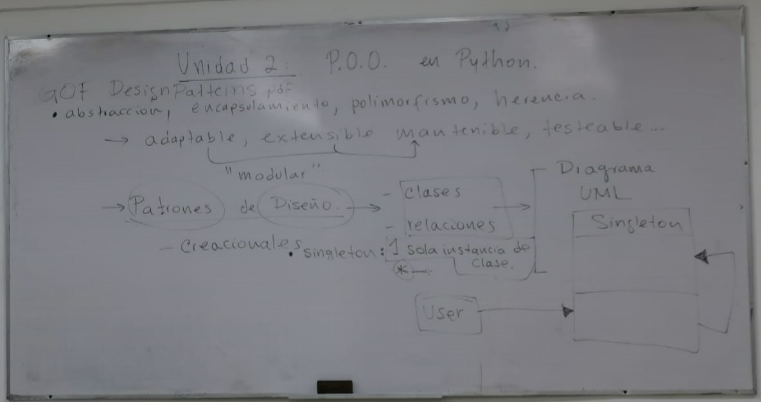 Unidad 2: P.O.O. en Python.
GOF DesignPatterns pdf
• abstraccion, encapsulamiento, polimorfismo, herencia.
→ adaptable, extensible mantenible, testeable...
"modular"
→ Patrones de Diseño → - clases
- relaciones
Diagrama
UML
- Creacionales
• singleton: 1 sola instancia de
clase.
*
Singleton
User